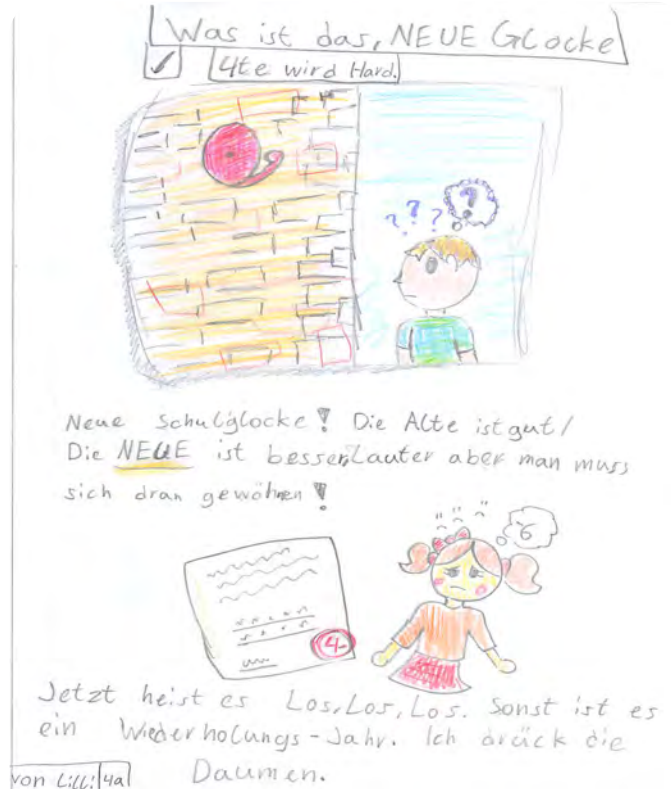 Was ist das, NEUE GLocke
4te wird Hard.
? ? ? ?
Neue Schulglocke! Die Alte ist gut/
Die NEUE ist besser, Lauter aber man muss
sich dran gewöhnen!
6
4-
Jetzt heist es Los, Los, Los. Sonst ist es
ein Wiederholungs-Jahr. Ich drück die
Daumen.
von Lilli 4a